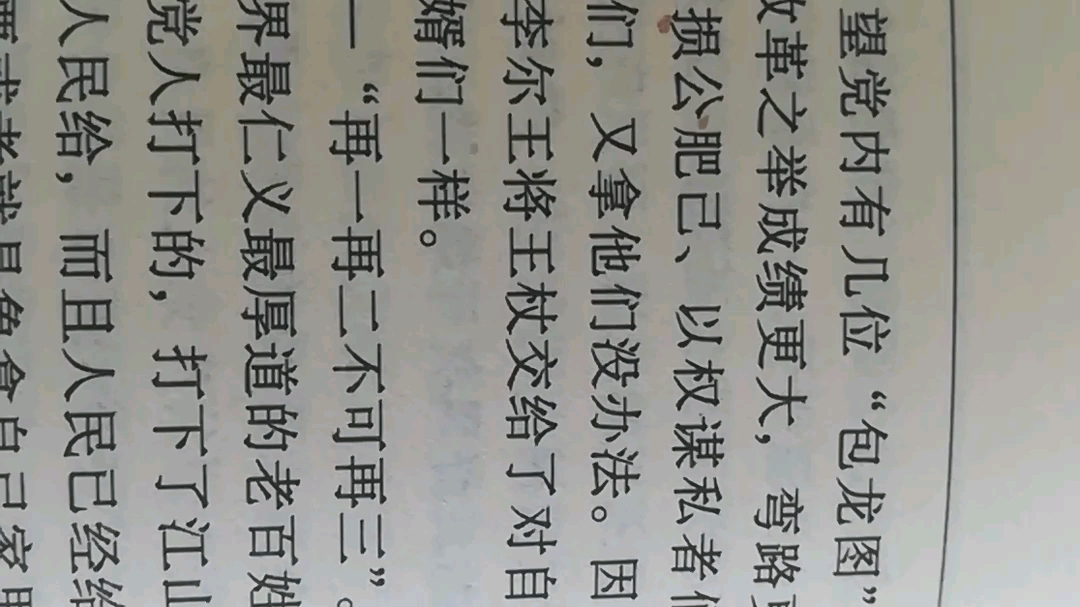 望党内有几位“包龙图”
改革之举成绩更大，弯路
损公肥己、以权谋私者
们，又拿他们没办法。因
李尔王将王杖交给了对自
婿们一样。
—“再一再二不可再三”。
界最仁义最厚道的老百姓
党人打下的，打下了江山
人民给，而且人民已经给
自己家